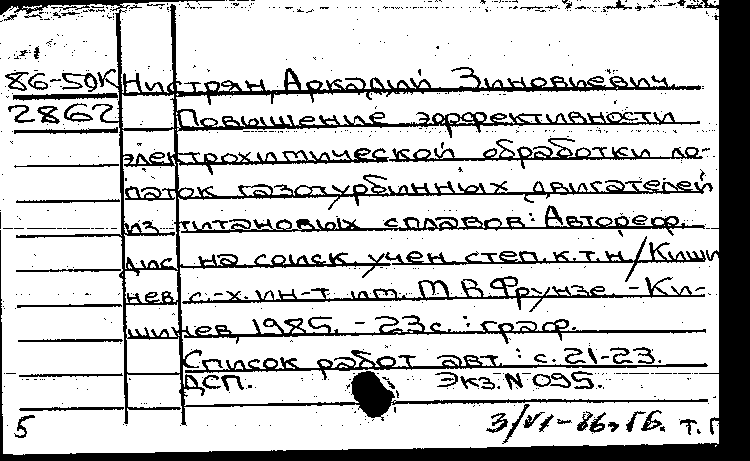 86-50К Нистрян, Аркадий Зиновиевич.
2862 Повышение эффективности
электрохимической обработки ло-
паток газотурбинных двигателей
из титановых сплавов: Автореф.
дис. на соиск. учен. степ. к.т.н./Киши
нев. с.-х. ин-т им. М.В.Фрунзе. -Ки-
шинев, 1985. - 23с. : граф.
Список работ авт.: с. 21-23.
ДСП. Экз. N 095.
5 3/VI-86 т. П